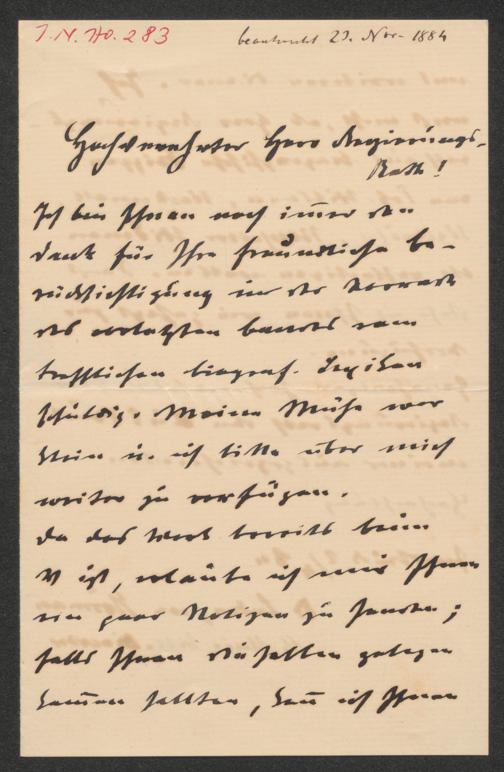 I.N. No. 283
beantwortet 29. Nov. 1884
Hochverehrter Herr Regierungs-
Rath!
Ich bin Ihnen noch im̅er den
Dank für Ihre freundliche Be-
rücksichtigung in der Vorrede
des vorletzten Bandes vom
trefflichen biograf. Lexikon
schuldig. Meine Mühe war
klein u. ich bitte über mich
weiter zu verfügen.
Da das Werk bereits beim
W ist, erlaube ich mir Ihnen
ein paar Notizen zu senden;
falls Ihnen dieselben gelegen
kom̅en sollten, kan̅ ich Ihnen